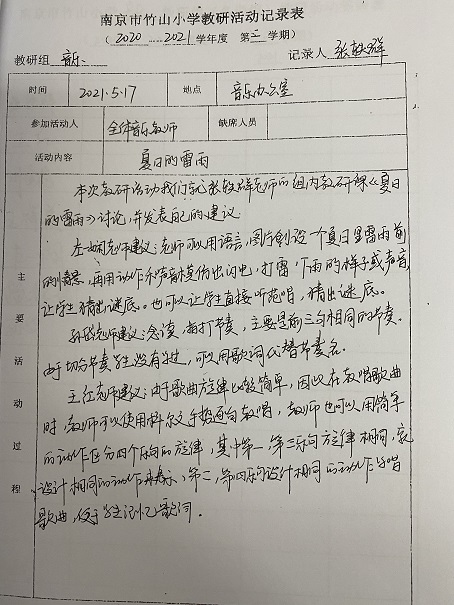 南京市竹山小学教研活动记录表
（2020——2021学年度 第二学期）
教研组 音乐 记录人 张
时间 2021.5.17 地点 音乐办公室
参加活动人 全体音乐教师 缺席人员
活动内容 夏日的雷雨
主要活动过程
本次教研活动我们就张老师的组内教研课《夏日
的雷雨》讨论，并发表自己的建议。
左老师建议：老师可以用语言，图片创设一个夏日里雷雨前
的情景，再用动作和声音模仿出闪电，打雷，下雨的样子或声音，
让学生猜出谜底。也可以让学生直接听范唱，猜出谜底。
孙老师建议：念读，拍打节奏，主要是前三句相同的节奏。
由于切分节奏学生没有学过，可以用歌词代替节奏名。
王红老师建议：由于歌曲旋律比较简单，因以在教唱歌曲
时，教师可以使用柯尔文手势进行教唱，教师也可以用简单
的动作区分四个乐句的旋律，其中第一、第三乐句旋律相同，就
设计相同的动作来表示，第二，第四乐句设计相同的动作学唱
歌曲，便于学生记忆歌词。